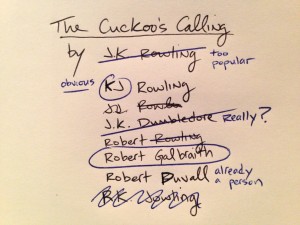 The Cuckoo's Calling
by J.K. Rowling too popular
obvious KJ Rowling
J.K. Dumbledore Really?
Robert Rowling
Robert Galbraith
Robert Duvall already a person